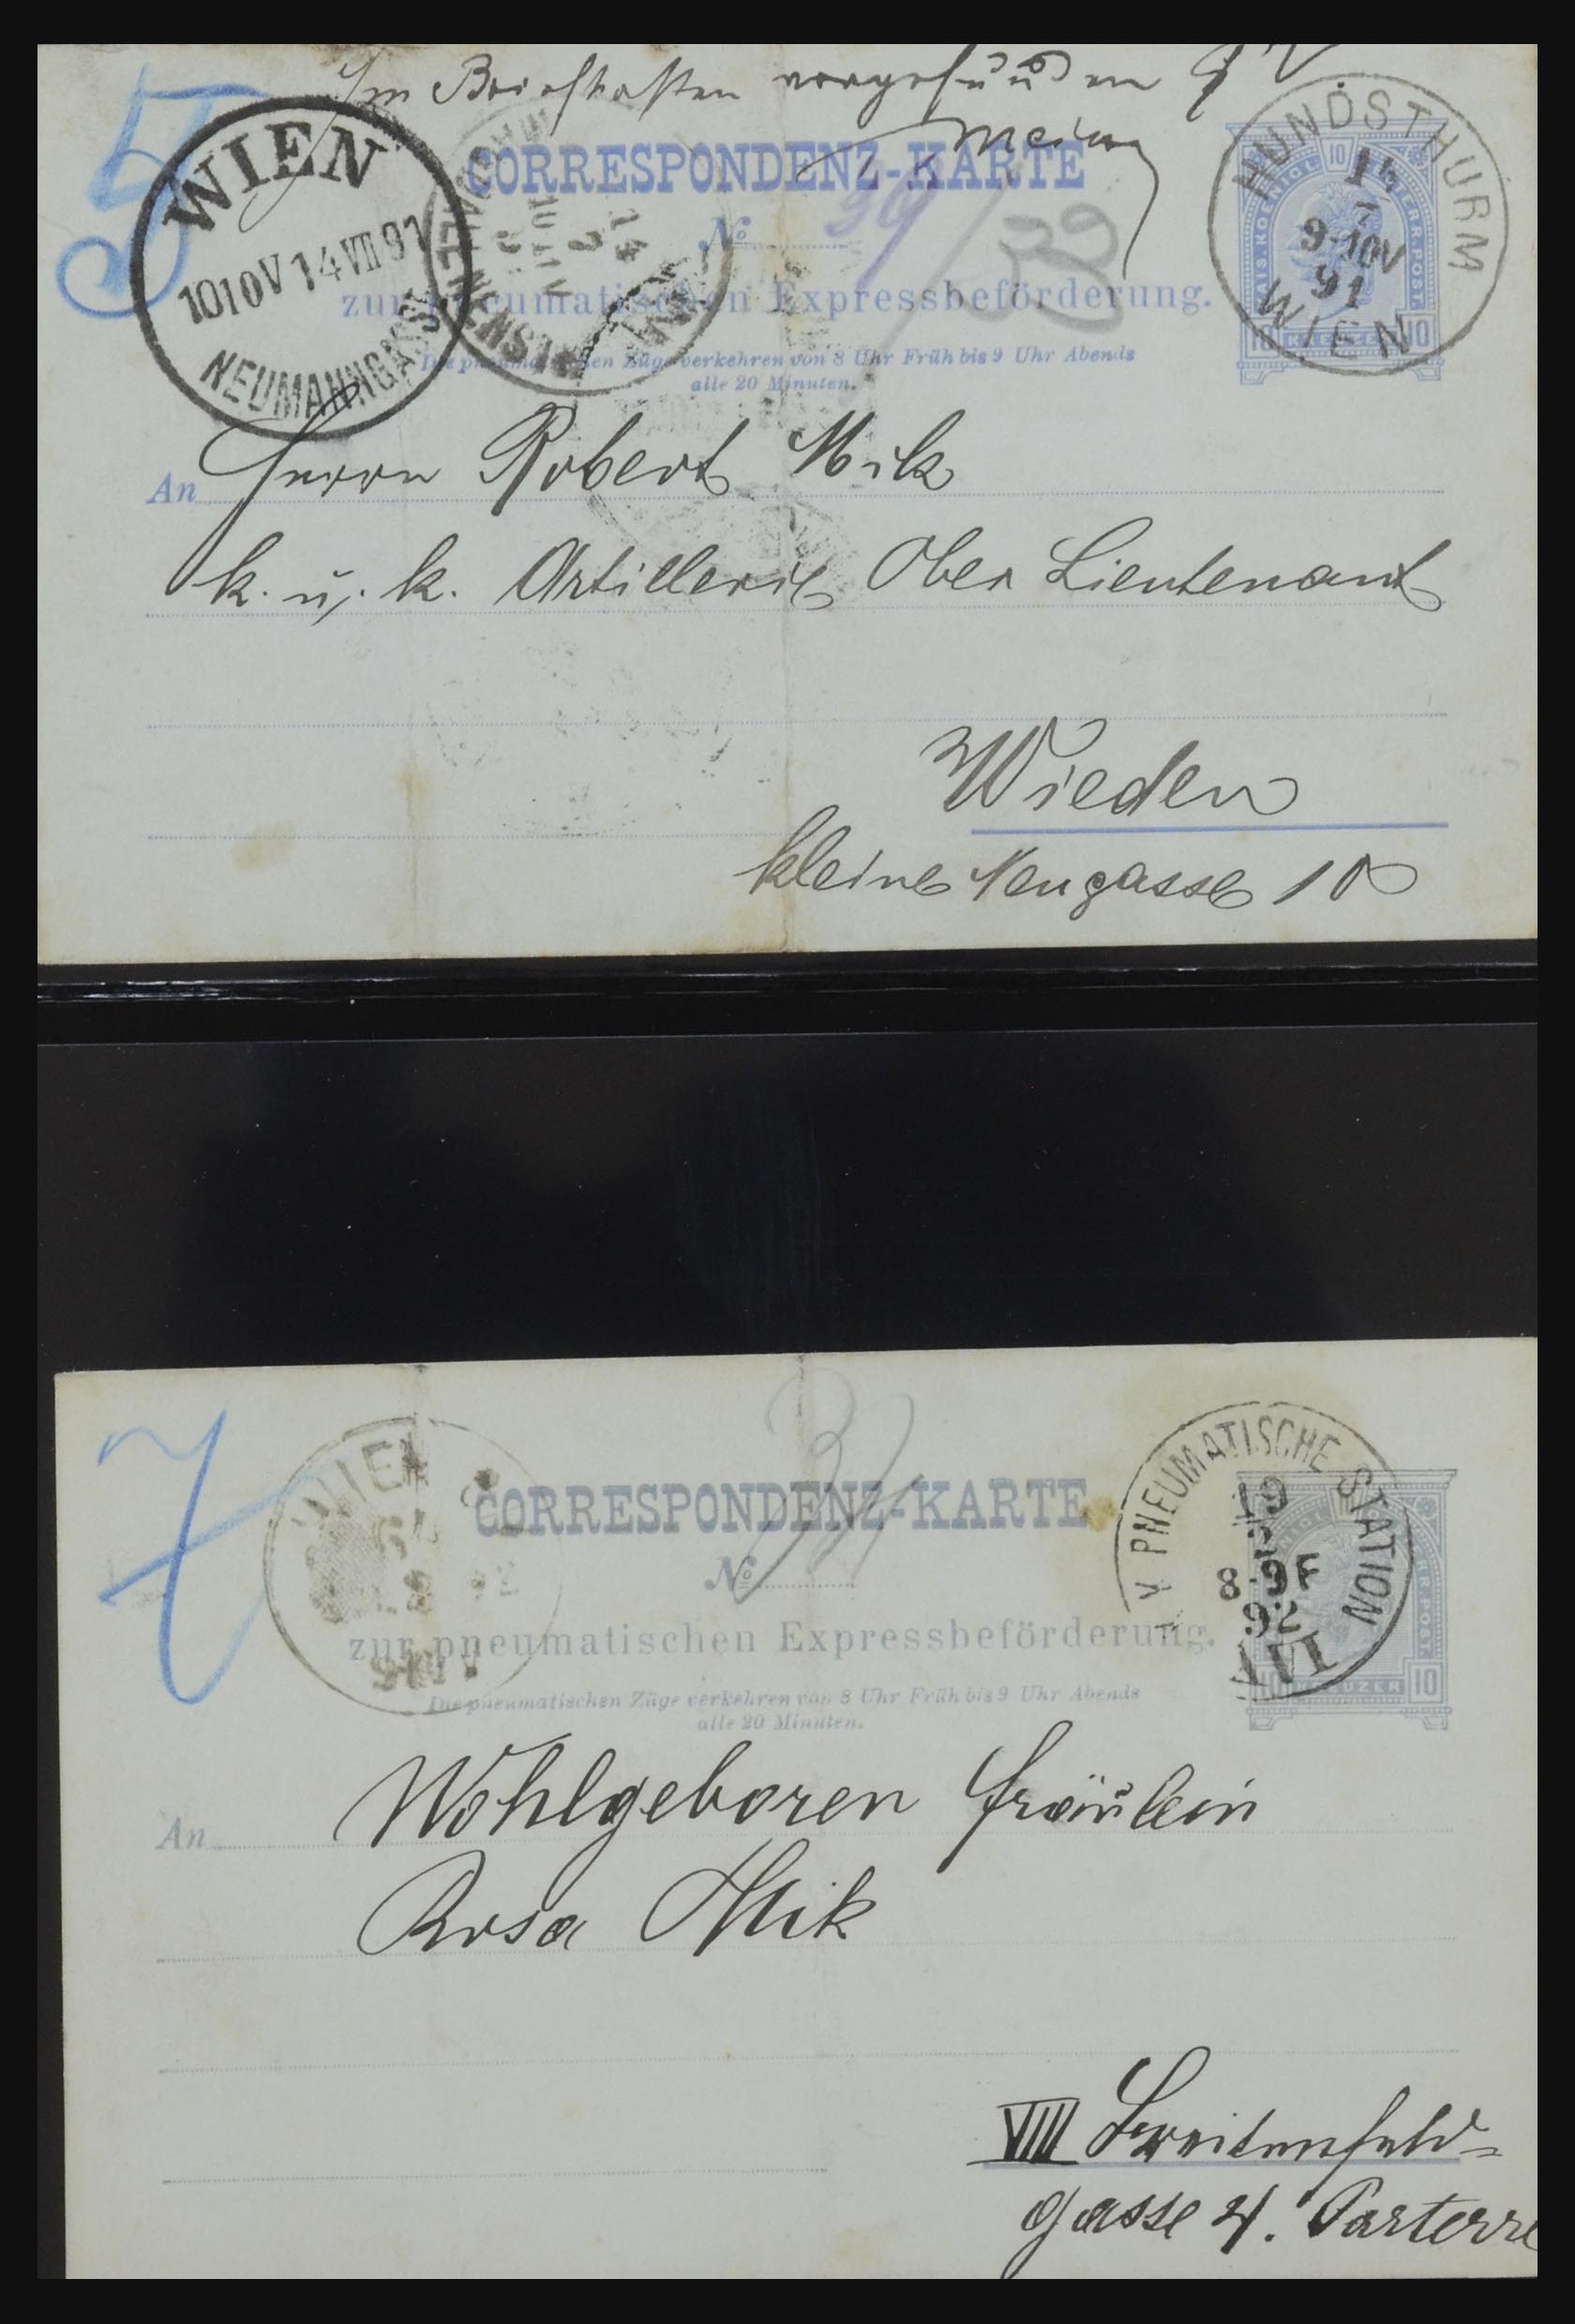 Im Briefkasten vorgefunden
5
WIEN
1010V 14 VII 91
NEUMANNGASSE
CORRESPONDENZ-KARTE
No 39
39
zur pneumatischen Expressbeförderung.
Die pneumatischen Züge verkehren von 8 Uhr Früh bis 9 Uhr Abends
alle 20 Minuten.
HUNDSTHURM
14
7
9-10V
91
WIEN
KAIS. KOENIGL. OESTERR. POST.
10
10 KREUZER 10
An Herrn Robert Mik
k. u. k. Artillerie Ober Lieutenant
Wieden
kleine Neugasse 10
7
WIEN
CORRESPONDENZ-KARTE
No
zur pneumatischen Expressbeförderung.
Die pneumatischen Züge verkehren von 8 Uhr Früh bis 9 Uhr Abends
alle 20 Minuten.
PNEUMATISCHE STATION
19
8·9F
92
10 KREUZER 10
An Wohlgeboren Fräulein
Rosa Mik
VIII Breitenfeld-
gasse 4. Parterre